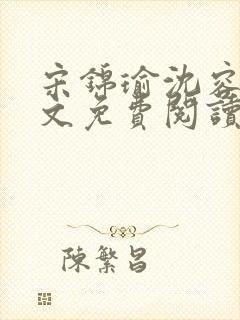 宋锦瑜沈容
文免費閱讀
陳繁昌